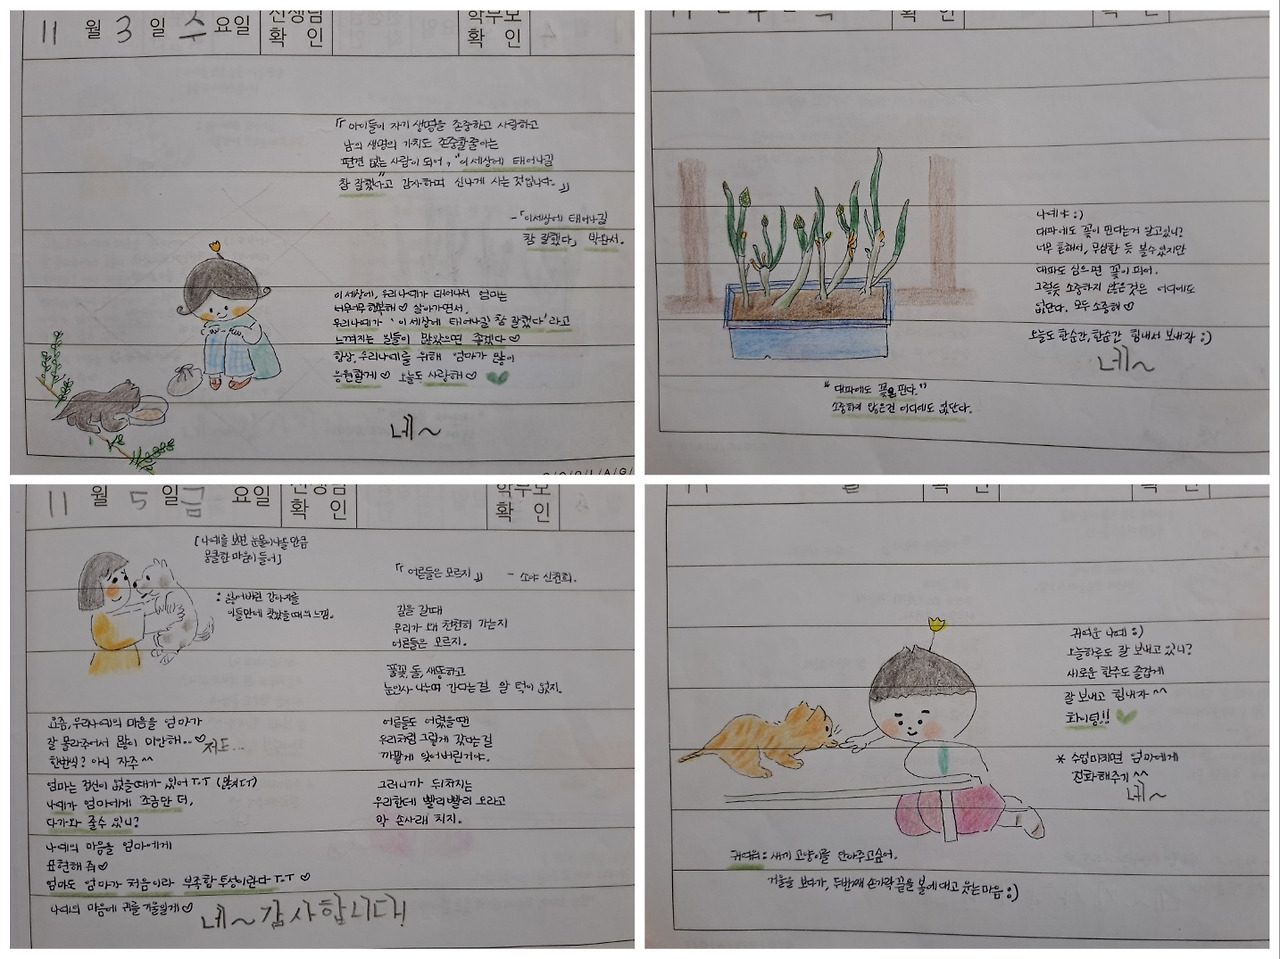 11 월 3 일 수 요일 선생님 확 인 학부모 확 인
「아이들이 자기 생명을 존중하고 사랑하고
남의 생명의 가치도 존중할줄아는
편견 없는 사람이 되어, "이 세상에 태어나길
참 잘했다"고 감사하며 신나게 사는 것입니다.」
-「이세상에 태어나길
참 잘했다」 박완서.
이 세상에, 우리나예가 태어나서 엄마는
너무너무 행복해♡ 살아가면서,
우리나예가 '이 세상에 태어나길 참 잘했다'라고
느껴지는 일들이 많았으면 좋겠다♡
항상, 우리나예를 위해 엄마가 많이
응원할게♡ 오늘도 사랑해♡
네~
확 인 확 인
나예야 :)
대파에도 꽃이 핀다는거 알고있니?
너무 흔해서, 무심한 듯 볼수있지만
대파도 심으면 꽃이 피어.
그렇듯 소중하지 않은것은 어디에도
없단다. 모두 소중해♡
오늘도 한순간, 한순간 힘내서 보내자 :)
네~
"대파에도 꽃은 핀다."
소중하지 않은건 어디에도 없단다.
11 월 5 일 금 요일 선생님 확 인 학부모 확 인
[나예를 보면 눈물이나올만큼
뭉클한 마음이 들어]
: 잃어버린 강아지를
이틀만에 찾았을때의 느낌.
「어른들은 모르지」 - 소야 신천희.
길을 갈때
우리가 왜 천천히 가는지
어른들은 모르지.
풀꽃, 돌, 새똥하고
눈인사 나누며 간다는걸 알 턱이 없지.
어른들도 어렸을땐
우리처럼 그렇게 갔다는걸
까맣게 잊어버린거야.
그러니까 뒤쳐지는
우리한테 빨리빨리 오라고
막 손사래 치지.
요즘, 우리나예의 마음을 엄마가
잘 몰라주어서 많이 미안해..♡ 저도...
한번씩? 아니 자주^^
엄마는 정신이 없을때가 있어 T.T
나예가 엄마에게 조금만 더,
다가와 줄수 있니?
나예의 마음을 엄마에게
표현해 줘♡
엄마도 엄마가 처음이라 부족함 투성이란다 T.T ♡
나예의 마음에 귀를 기울일게♡ 네~ 감사합니다!
확 인 확 인
귀여운 나예 :)
오늘하루도 잘 보내고 있니?
새로운 한주도 즐겁게
잘 보내고 힘내자^^
화이팅!!
* 수업마치면 엄마에게
전화해주기^^
네~
귀여워 : 새끼 고양이를 안아주고싶어.
거울을 보다가, 두번째 손가락 끝을 볼에 대고 웃는마음 :)